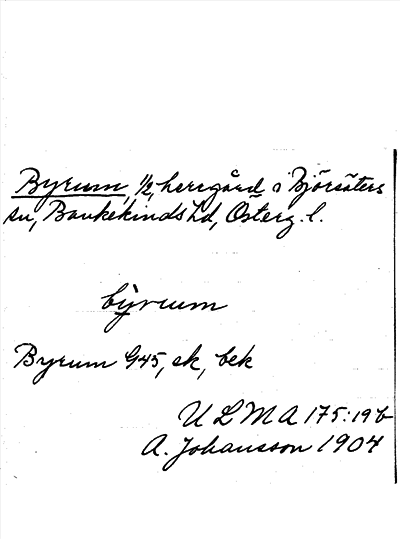 Byrum, 1/2, herrgård i Björsäters
sn, Bankekinds hd, Österg. l.
býrum
Byrum G45, ek, bek
ULMA 175:19b
A. Johansson 1904